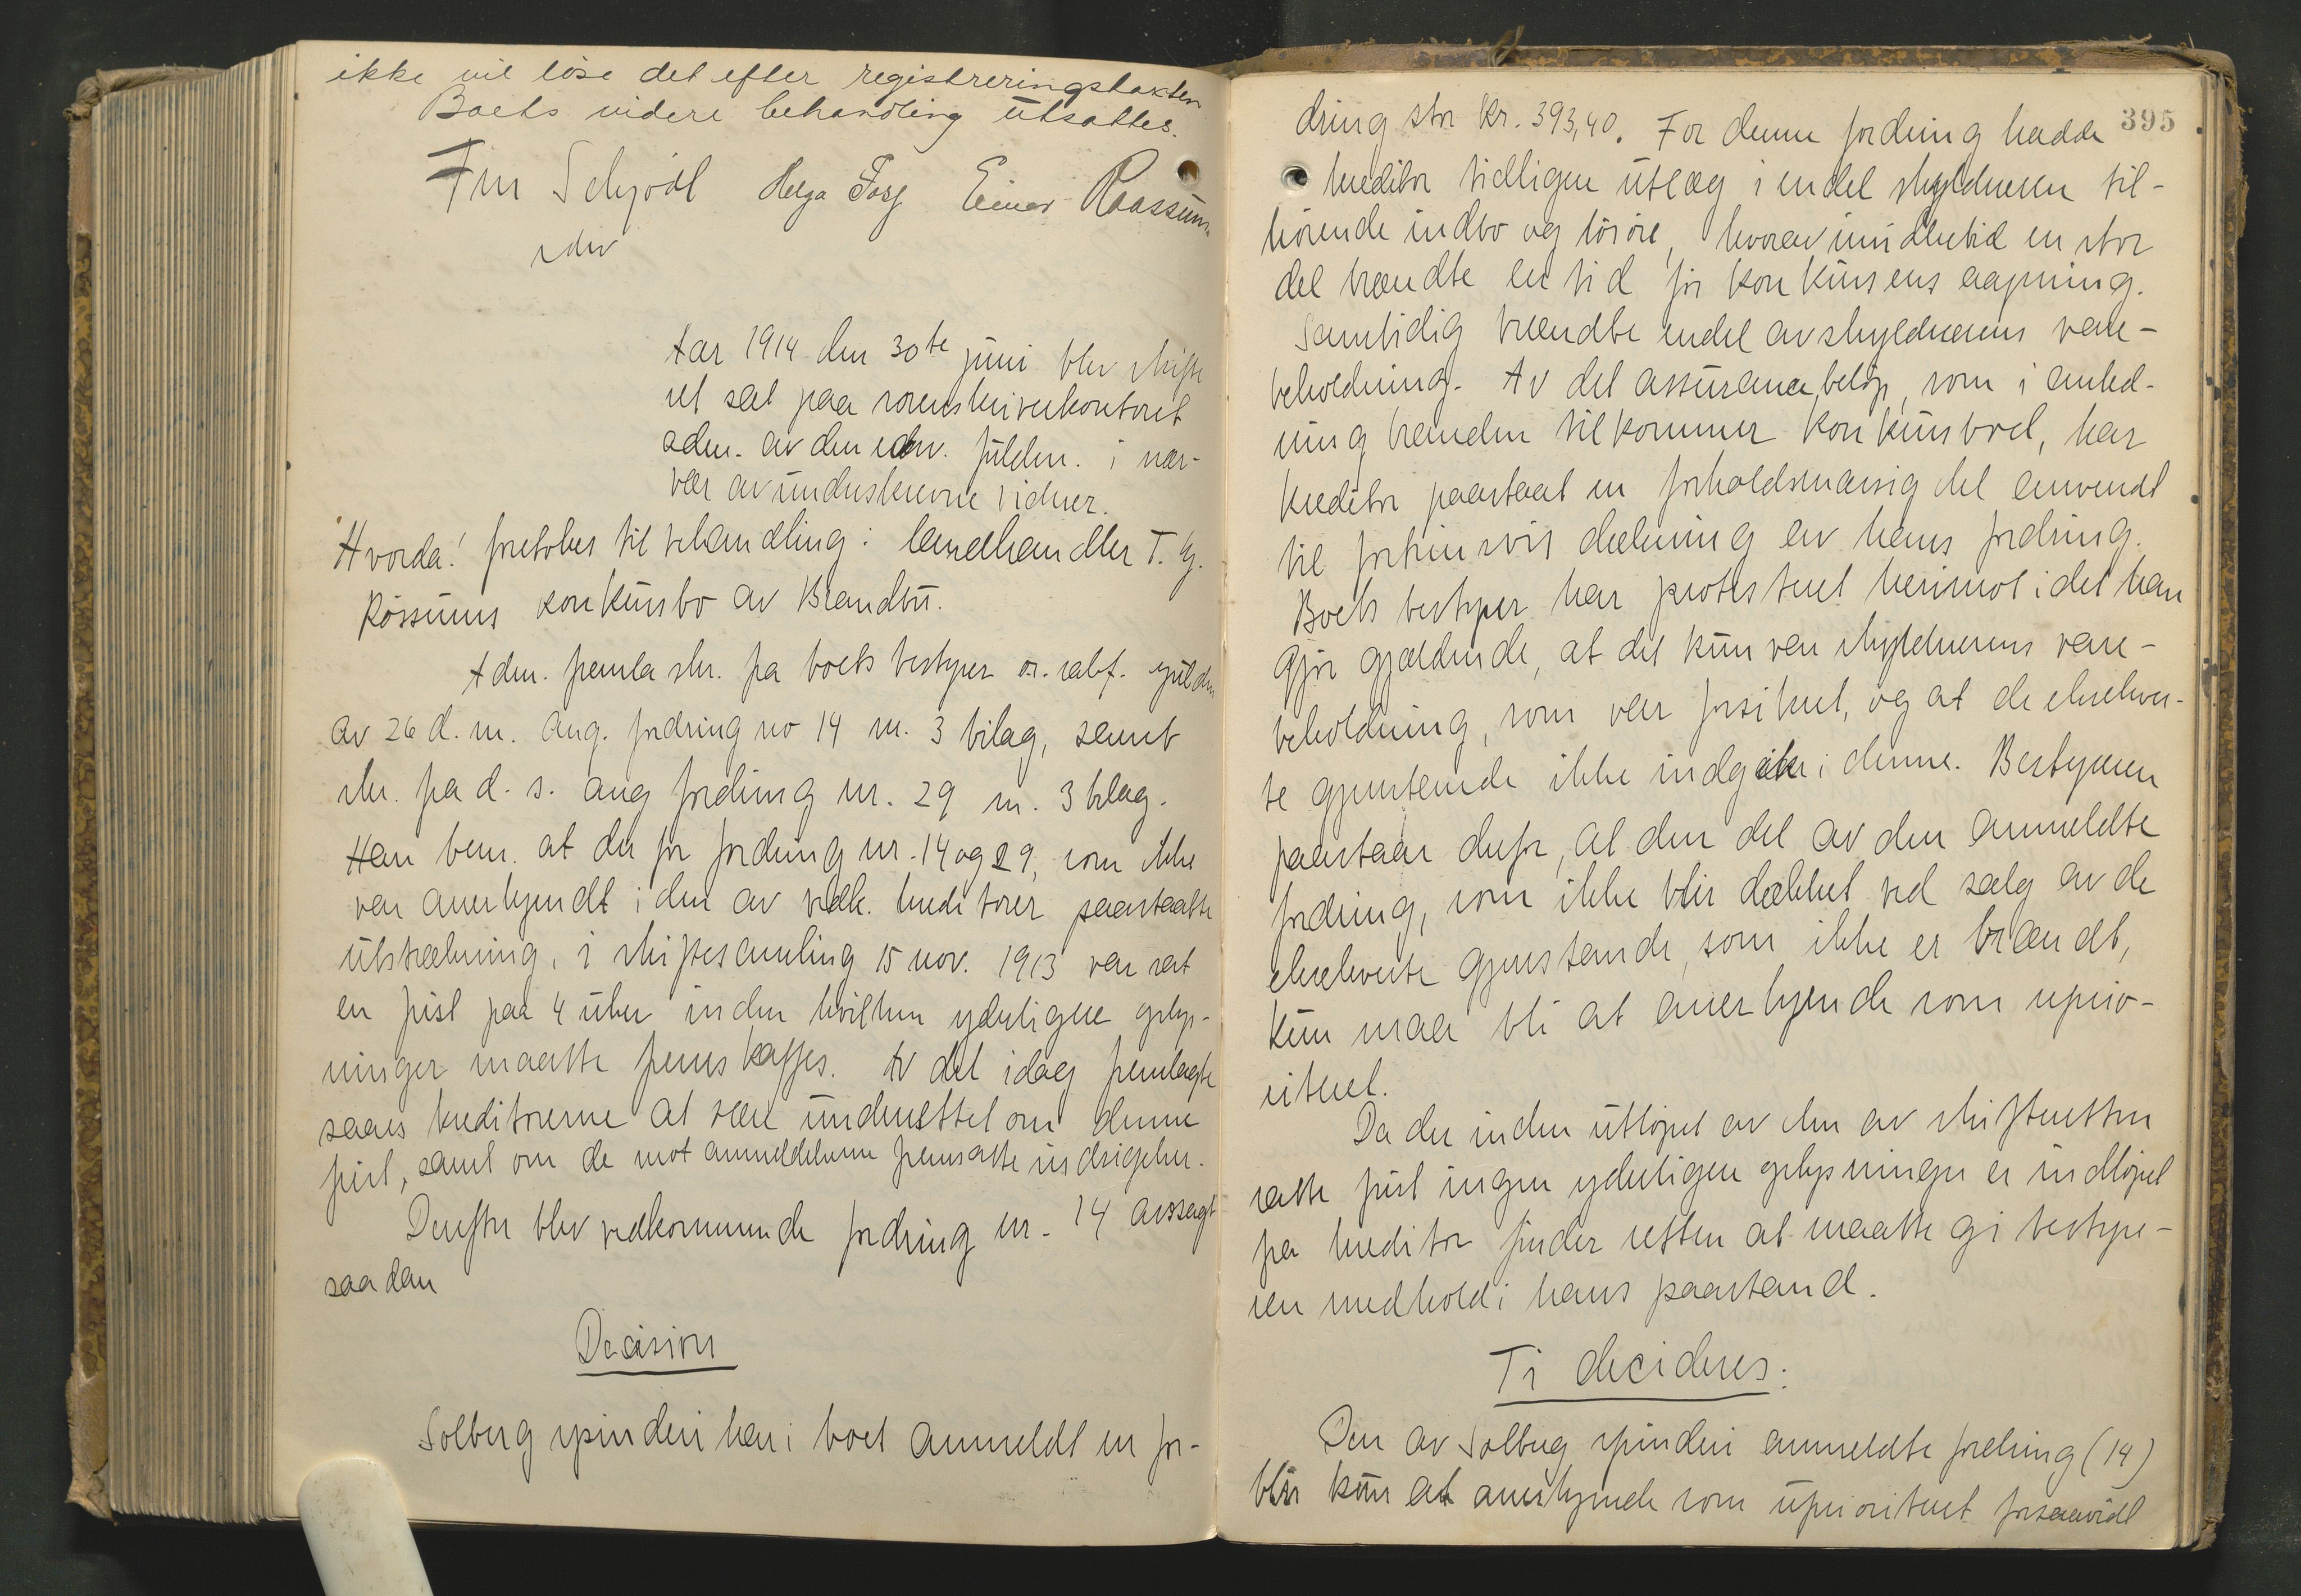 ikke vil löse det efter registreringstaksten
Boets videre behandling utsattes.
Finn Schjödt Helga Fosj Einar Raassum
cdw
Aar 1914 den 30te juni blev skifte
ret sat paa sorenskriverkontoret
adm. av den edsv. fuldm. i nær-
vær av underskrevne vidner.
Hvorda! foretokes til behandling: landhandler T. G.
Røssums konkursbo av Brandbu.
Adm. fremla skr. fra boets bestyrer o.r.sakf. Gulden
av 26 d. m. ang. fordring no 14 m. 3 bilag, samt
skr. fra d. s. ang fordring nr. 29 m. 3 bilag.
Han bem. at der for fordring nr. 14 og 29, som ikke
var anerkjendt i den av vedk. kreditorer paastaatte
utstrækning, i skiftesamling 15 nov. 1913 var sat
en frist paa 4 uker inden hvilken yderligere oplys-
ninger maatte fremskaffes. Av det idag fremlagte
saaes kreditorerne at være underrettet om denne
frist, samt om de mot anmeldelserne fremsatte indsigelser.
Derefter blev vedkommende fordring nr. 14 avsagt
saadan
Decision
Solberg spinderi har i boet anmeldt en for-
395
dring stor kr. 393,40. For denne fordring hadde
kreditor tidligere utlæg i endel skyldneren til-
hörende indbo og lösöre, hvorav imidlertid en stor
del brændte en tid før konkursens aapning.
Samtidig brændte endel av skyldnerens vare-
beholdning. Av det assurancebeløp, som i anled-
ning branden tilkommer konkursboet, har
kreditor paastaat en forholdsmæssig del anvendt
til fortrinsvis dækning av hans fordring.
Boets bestyrer har protestert herimot idet han
gjør gjældende, at det kun var skyldnerens vare-
beholdning, som var forsikret, og at de ekseku-
te gjenstande ikke indgik i denne. Bestyreren
paastaar derfor, at den del av den anmeldte
fordring, som ikke blir dækket ved salg av de
ekseкverte gjenstande, som ikke er brændt,
kun maa bli at anerkjende som uprio-
ritert.
Da der inden utløpet av den av skifteretten
satte frist ingen yderligere oplysninger er indløpet
fra kreditor finder retten at maatte gi bestyre-
ren medhold i hans paastand.
Ti decideres:
Den av Solberg spinderi anmeldte fordring (14)
blir kun at anerkjende som uprioritert forsaavidt